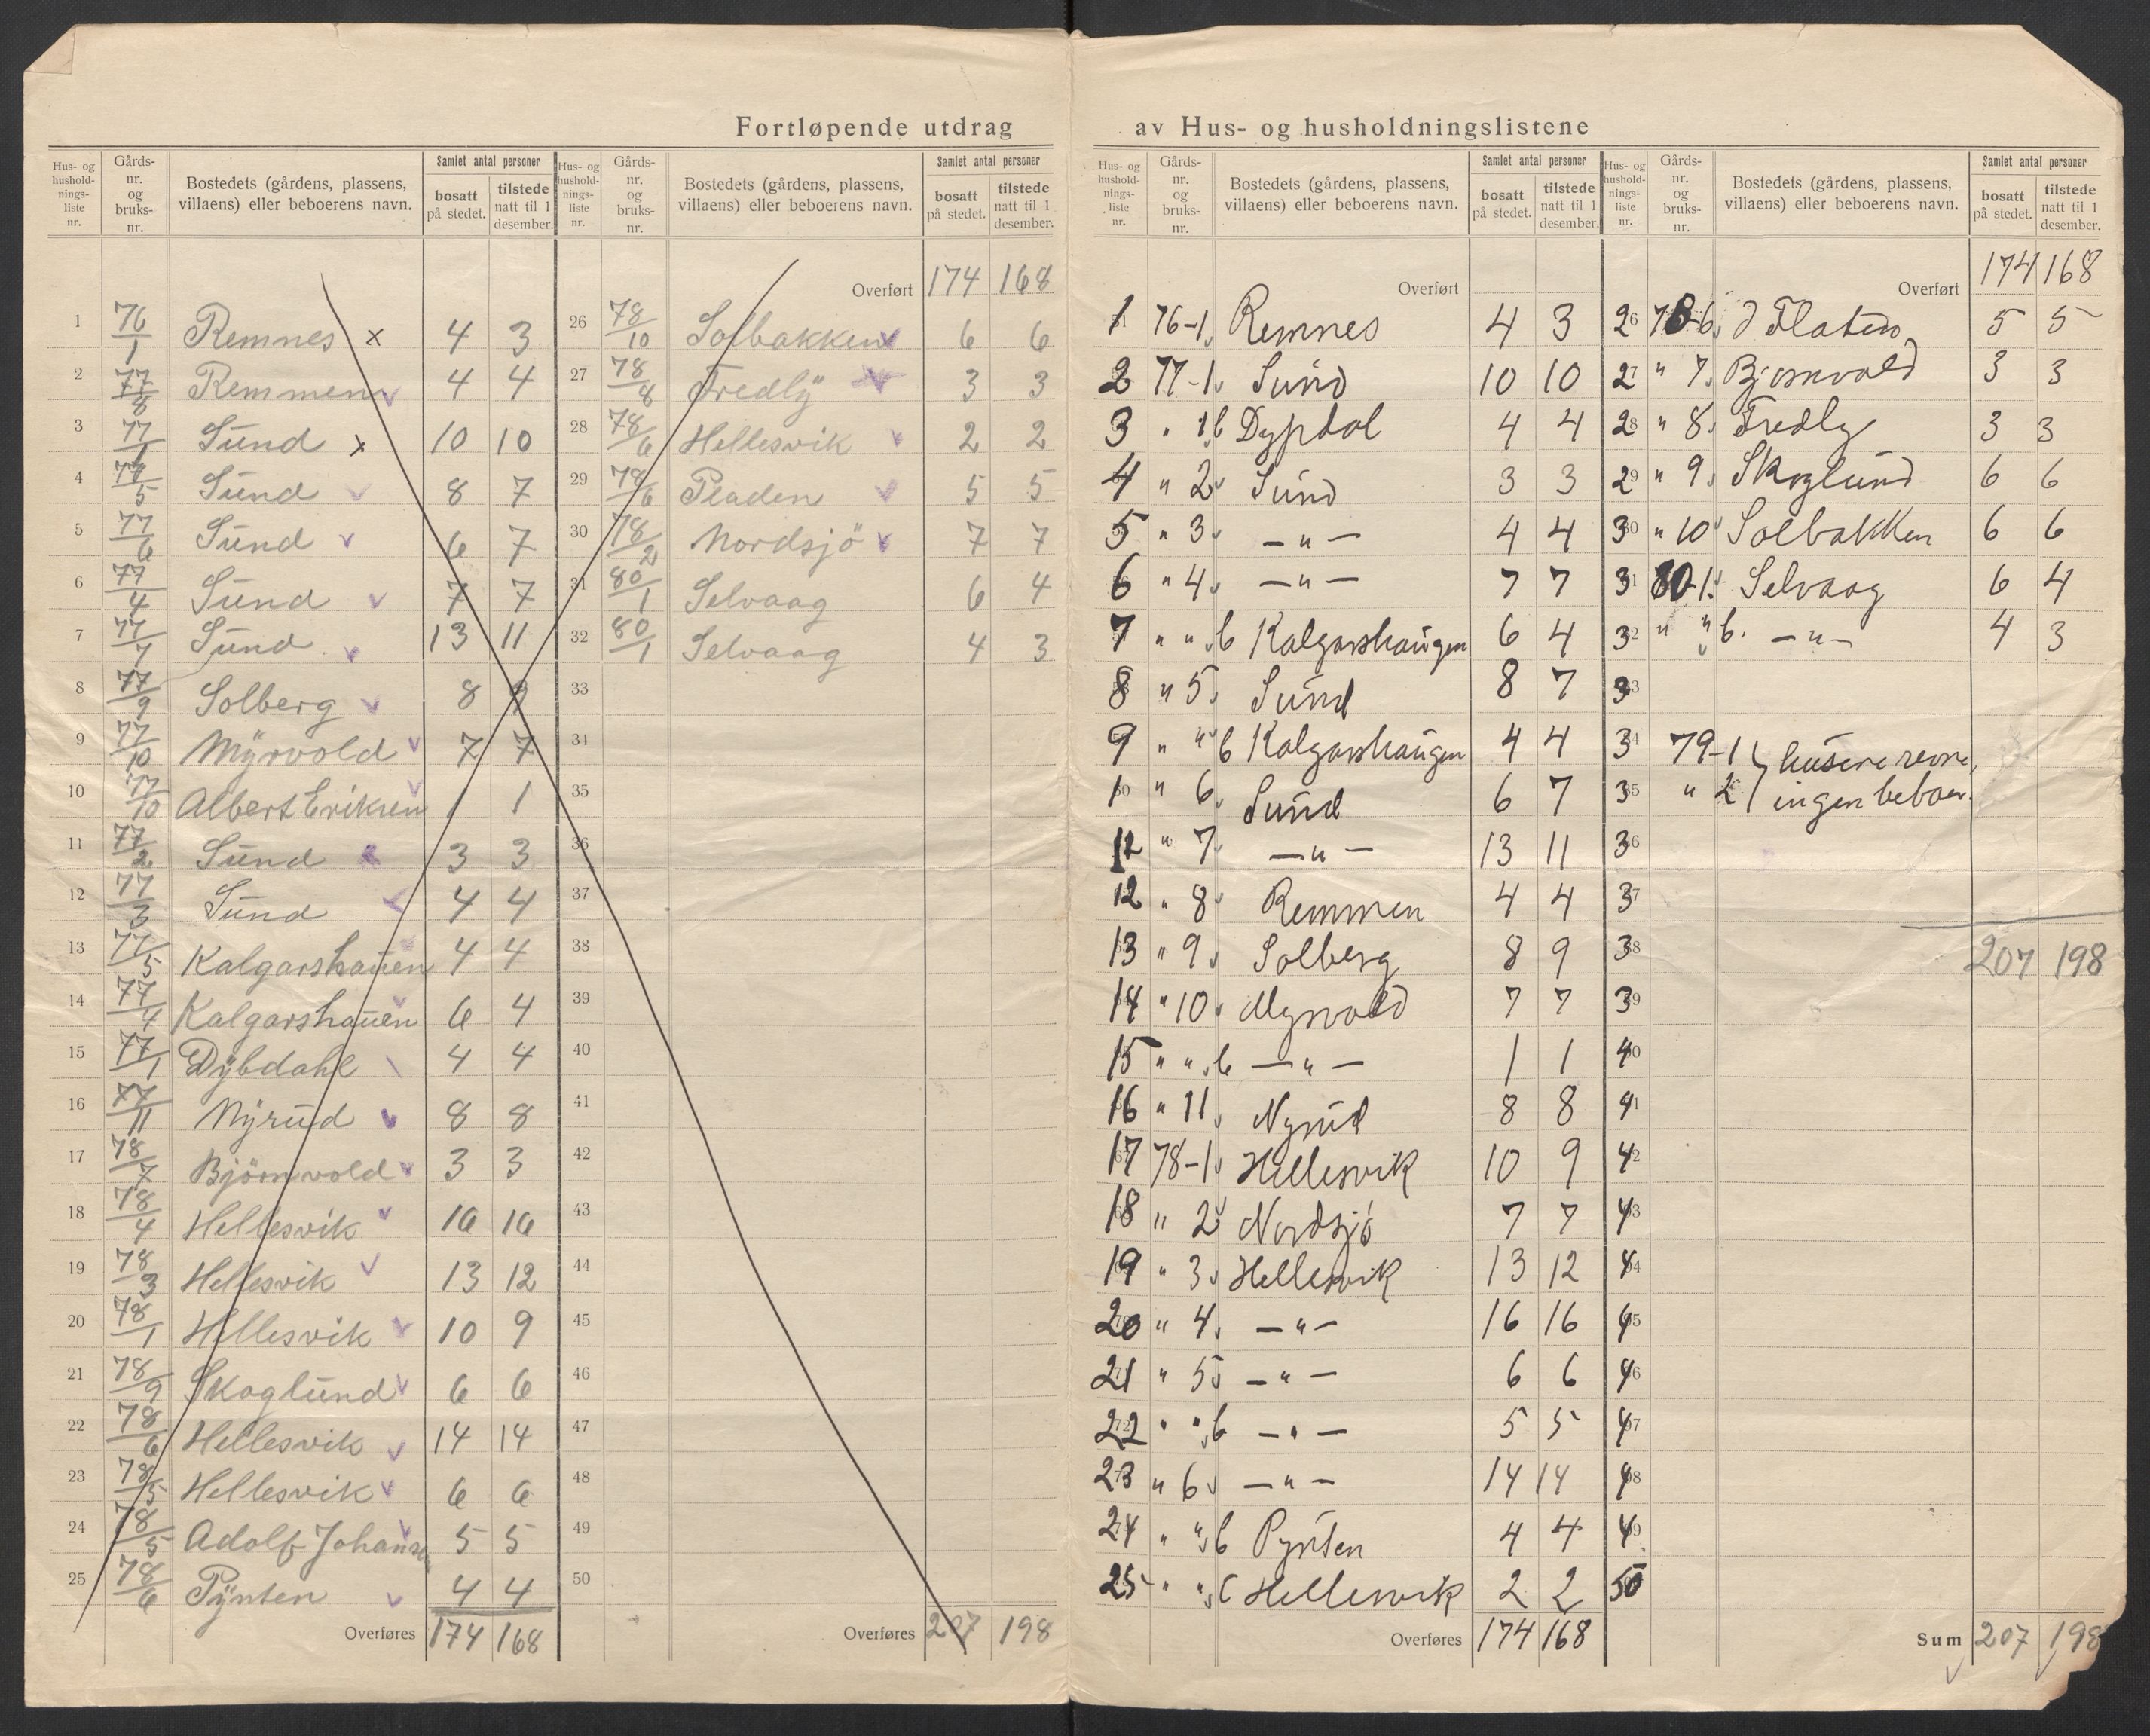 Fortløpende utdrag av Hus- og husholdningslistene
Hus- og husholdnings-liste nr. | Gårds-nr. og bruks-nr. | Bostedets (gårdens, plassens, villaens) eller beboerens navn. | Samlet antal personer | bosatt på stedet. | tilstede natt til 1 desember.
1 76/1 Remnes x 4 3
2 77/8 Remmen v 4 4
3 77/1 Sund x 10 10
4 77/5 Sund v 8 7
5 77/6 Sund v 6 7
6 77/4 Sund v 7 7
7 77/7 Sund v 13 11
8 77/9 Solberg v 8 9
9 77/10 Myrvold v 7 7
10 77/10 Albert Eriksen v 1 1
11 77/2 Sund 3 3
12 77/3 Sund v 4 4
13 77/5 Kalgarshauen 4 4
14 77/4 Kalgarshauen v 6 4
15 77/1 Dybdahl 4 4
16 77/11 Nyrud v 8 8
17 78/7 Björnvold v 3 3
18 78/4 Hellesvik v 16 16
19 78/3 Hellesvik v 13 12
20 78/1 Hellesvik v 10 9
21 78/9 Skoglund v 6 6
22 78/6 Hellesvik v 14 14
23 78/5 Hellesvik v 6 6
24 78/5 Adolf Johansen v 5 5
25 78/6 Pynten v 4 4
Overføres 174 168
Hus- og husholdnings-liste nr. | Gårds-nr. og bruks-nr. | Bostedets (gårdens, plassens, villaens) eller beboerens navn. | Samlet antal personer | bosatt på stedet. | tilstede natt til 1 desember.
Overført 174 168
26 78/10 Solbakken v 6 6
27 78/8 Fredly v 3 3
28 78/6 Hellesvik v 2 2
29 78/6 Pladen v 5 5
30 78/2 Nordsjö v 7 7
31 80/1 Selvaag 6 4
32 80/1 Selvaag 4 3
33
34
35
36
37
38
39
40
41
42
43
44
45
46
47
48
49
50
Overføres 207 198
Hus- og husholdnings-liste nr. | Gårds-nr. og bruks-nr. | Bostedets (gårdens, plassens, villaens) eller beboerens navn. | Samlet antal personer | bosatt på stedet. | tilstede natt til 1 desember.
Overført
1 76-1 v Remnes 4 3
2 77-1 v Sund 10 10
3 " 1 b Dypdal 4 4
4 " 2 v Sund 3 3
5 " 3 v — " — 4 4
6 " 4 v — " — 7 7
7 " " v b Kalgarshaugen 6 4
8 " 5 v Sund 8 7
9 " " v b Kalgarshaugen 4 4
10 " 6 v Sund 6 7
12 " 7 v — " — 13 11
12 " 8 v Remmen 4 4
13 " 9 v Solberg 8 9
14 " 10 v Myrvold 7 7
15 " " v b — " — 1 1
16 " 11 v Nyrud 8 8
17 78-1 v Hellesvik 10 9
18 " 2 v Nordsjö 7 7
19 " 3 v Hellesvik 13 12
20 " 4 v — " — 16 16
21 " 5 v — " — 6 6
22 " " v b — " — 5 5
23 " 6 v — " — 14 14
24 " " v b Pynten 4 4
25 " " v c Hellesvik 2 2
Overføres 174 168
Hus- og husholdnings-liste nr. | Gårds-nr. og bruks-nr. | Bostedets (gårdens, plassens, villaens) eller beboerens navn. | Samlet antal personer | bosatt på stedet. | tilstede natt til 1 desember.
Overført 174 168
26 78-6 v d Flaten 5 5
27 " 7 v Bjørnvold 3 3
28 " 8 v Fredly 3 3
29 " 9 v Skoglund 6 6
30 " 10 v Solbakken 6 6
31 80-1 v Selvaag 6 4
32 " " v b. — " — 4 3
33
34 79-1 } husene revne,
35 " 2 } ingen beboer.
36
37
38 207 198
39
40
41
42
43
44
45
46
47
48
49
50
Sum 207 198